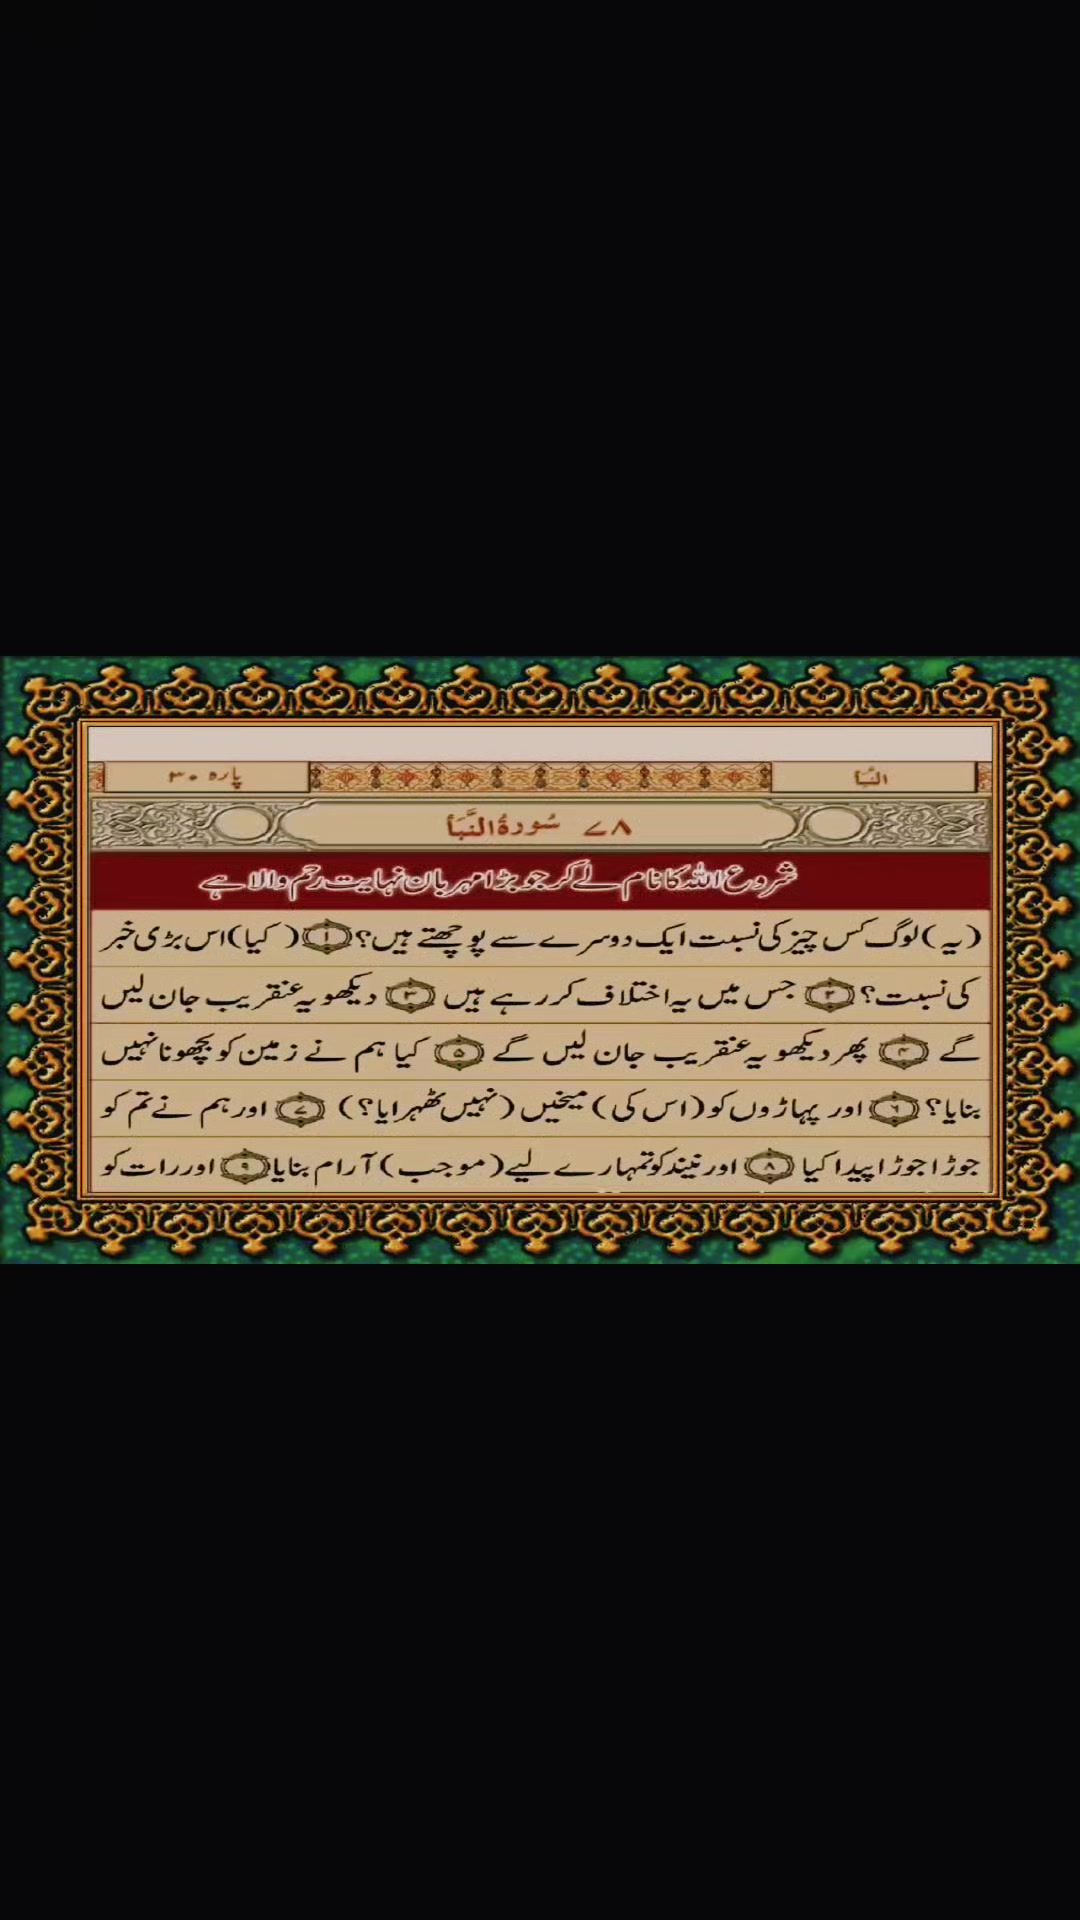 النَّبَأ
پارہ ۳۰
۷۸ سُورۃُ النَّبَأ
شروع اللہ کا نام لے کر جو بڑا مہربان نہایت رحم والا ہے
(یہ) لوگ کس چیز کی نسبت ایک دوسرے سے پوچھتے ہیں؟ ۱ (کیا) اس بڑی خبر
کی نسبت؟ ۲ جس میں یہ اختلاف کر رہے ہیں ۳ دیکھو یہ عنقریب جان لیں
گے ۴ پھر دیکھو یہ عنقریب جان لیں گے ۵ کیا ہم نے زمین کو بچھونا نہیں
بنایا؟ ۶ اور پہاڑوں کو (اس کی) میخیں (نہیں ٹھہرایا؟) ۷ اور ہم نے تم کو
جوڑا جوڑا پیدا کیا ۸ اور نیند کو تمہارے لیے (موجب) آرام بنایا ۹ اور رات کو